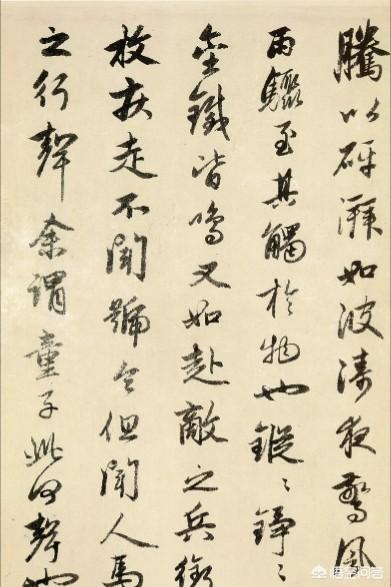 騰以砰湃如波濤夜驚風
雨驟至其觸於物也鏦〻錚〻
金鐵皆鳴又如赴敵之兵銜
枚疾走不聞號令但聞人馬
之行聲余謂童子此何聲也
悟空问答